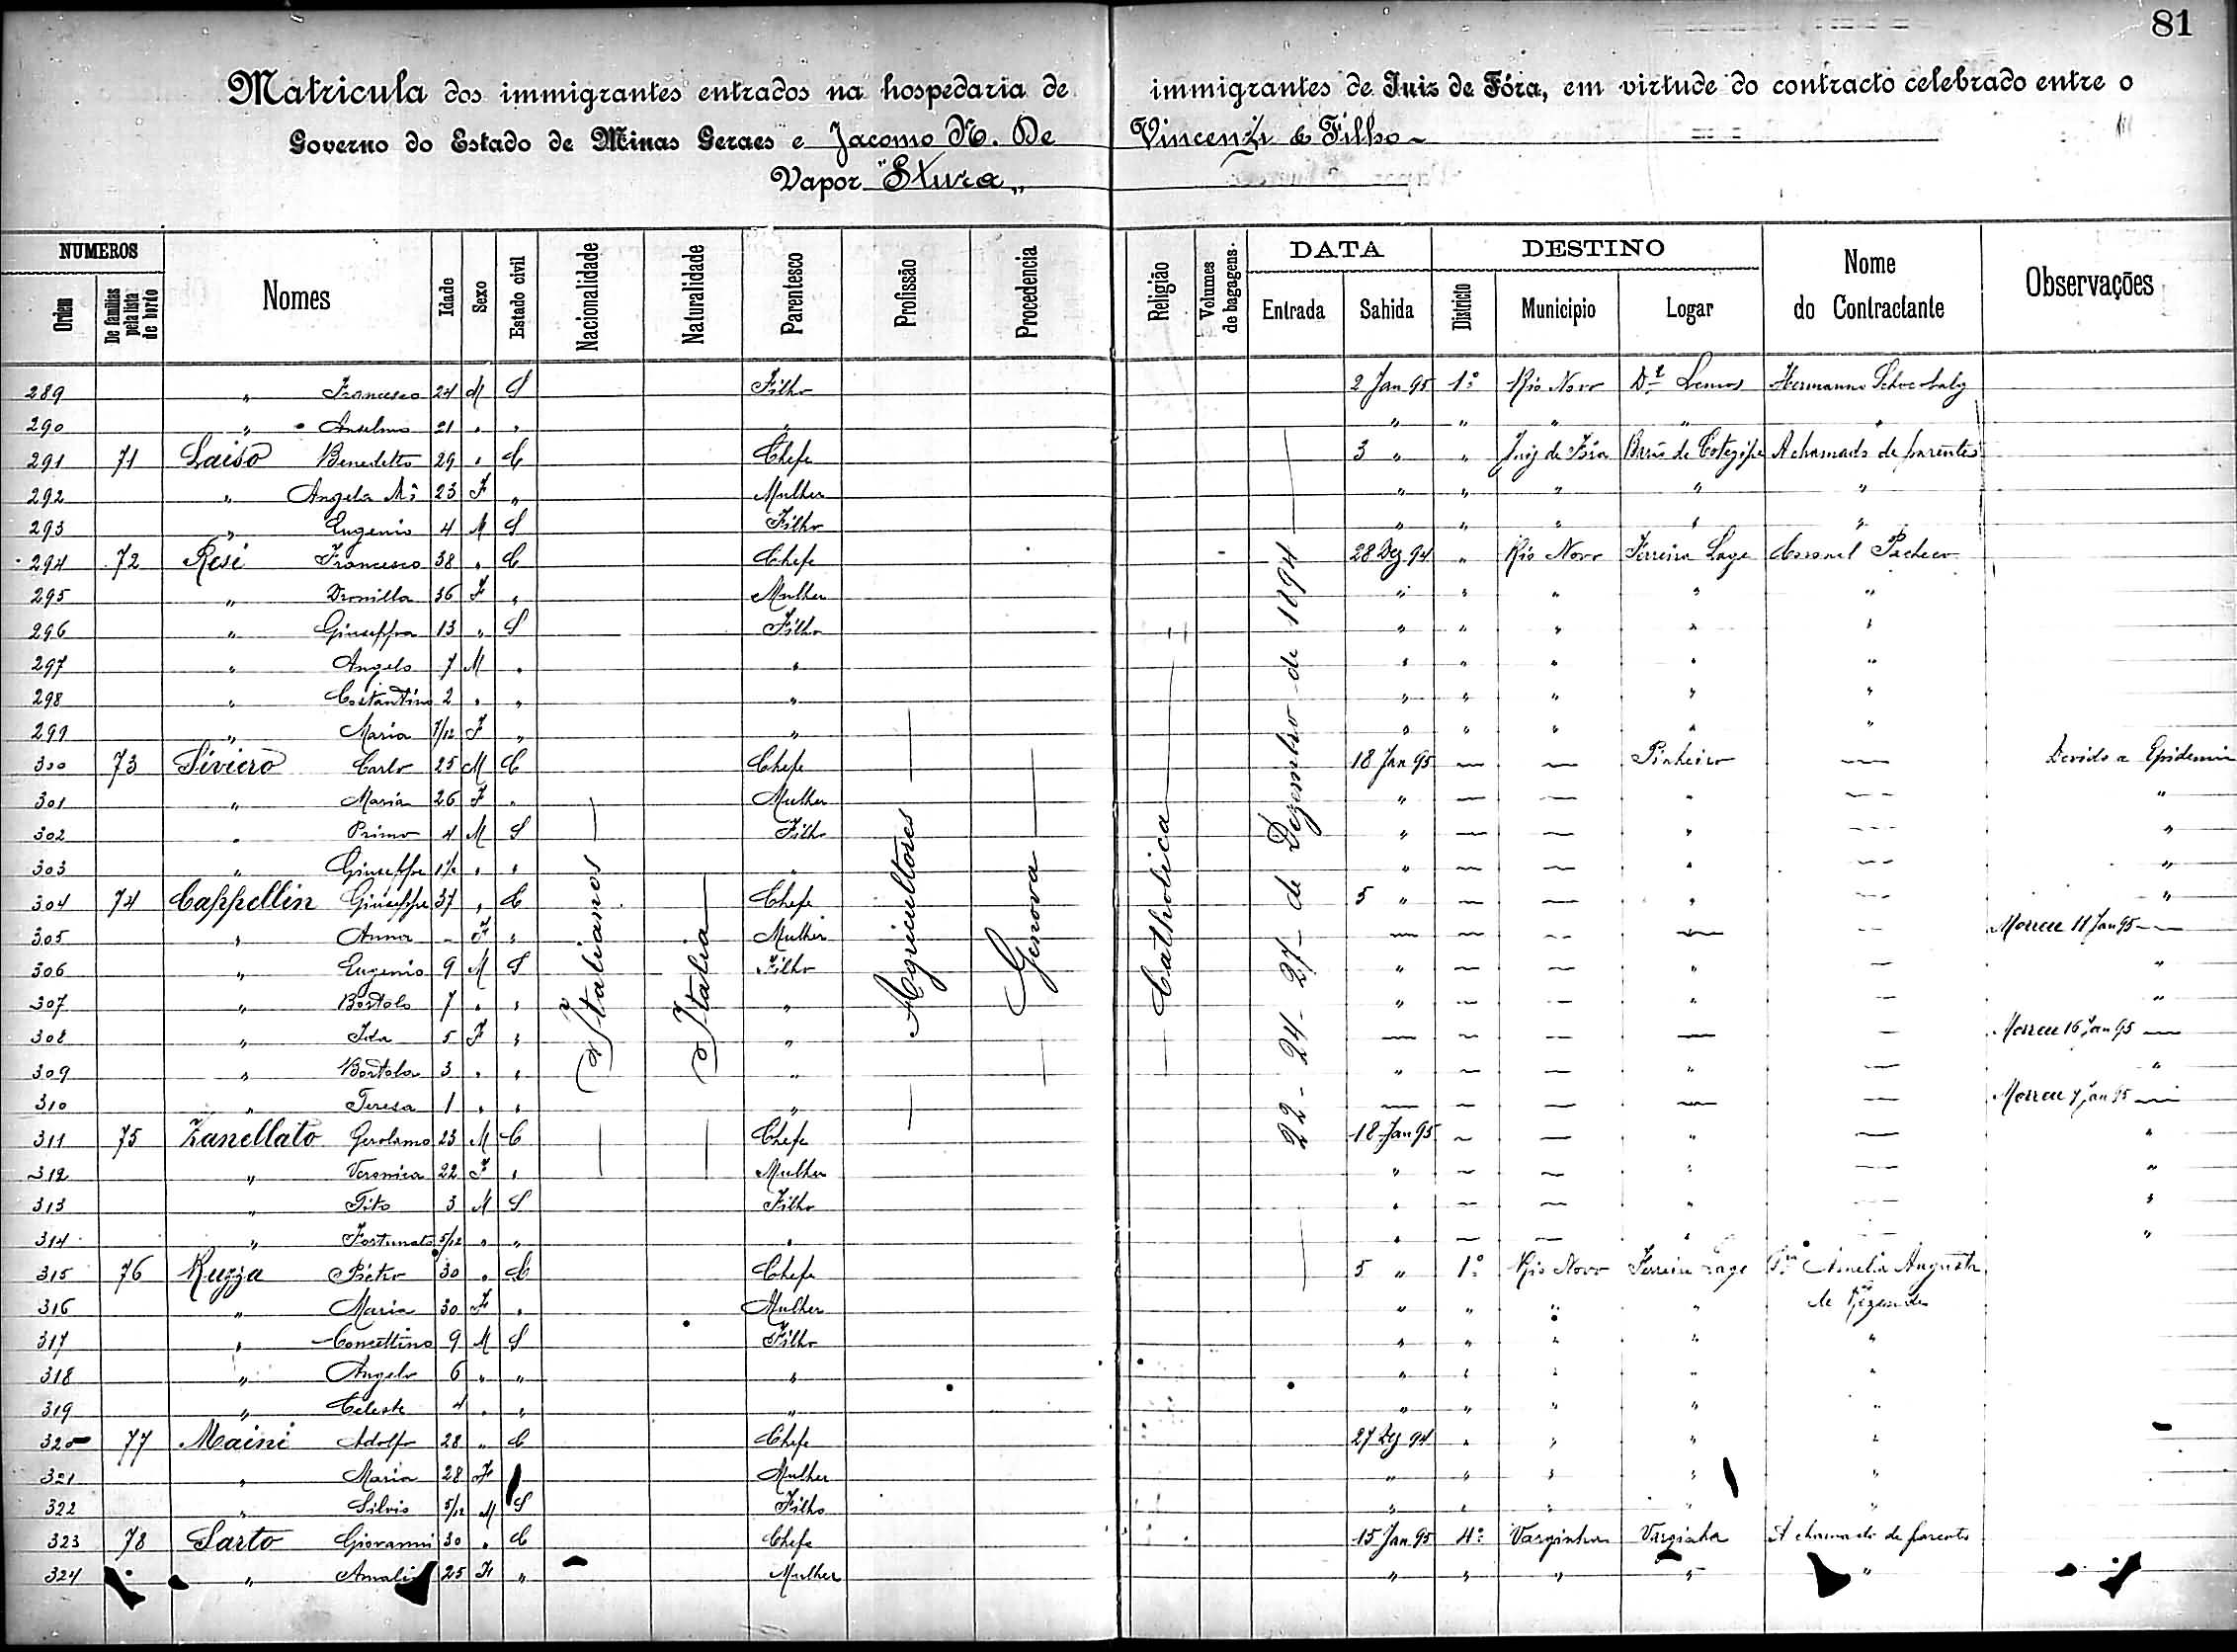 81
Matricula dos immigrantes entrados na hospedaria de immigrantes de Juiz de Fóra, em virtude do contracto celebrado entre o
Governo do Estado de Minas Geraes e Jacomo N. De Vincenzi & Filho
Vapor "Stura"
NUMEROS DATA DESTINO
Ordem De familias pela lista de bordo Nomes Idade Sexo Estado civil Nacionalidade Naturalidade Parentesco Profissão Procedencia Religião Volumes de bagagens. Entrada Sahida Districto Municipio Logar Nome do Contractante Observações
Italianos
Italia
Agricultores
Genova
Catholica
22 - 24 - 27 - de Dezembro de 1894
289 " Francesco 24 M S Filho 2 Jan 95 1º Rio Novo Dr Lemos Hermanno
290 " Anselmo 21 " " " " " " " "
291 71 Laiso Benedetto 29 " C Chefe 3 " " Juiz de Fóra Barão de Cotegipe A chamado de parentes
292 " Angela Mª 23 F " Mulher " " " " "
293 " Eugenio 4 M S Filho " " " " "
294 72 Resi Francesco 38 " C Chefe 28 Dez 94 " Rio Novo Ferreira Lage Coronel Pacheco
295 " 36 F " Mulher " " " " "
296 " Giuseppa 13 " S Filho " " " " "
297 " Angelo 7 M " " " " " " "
298 " Costantino 2 " " " " " " " "
299 " Maria 7/12 F " " " " " " "
300 73 Siviero Carlo 25 M C Chefe 18 Jan 95 — — Pinheiro — Devido a Epidemia
301 " Maria 26 F " Mulher " — — " — "
302 " Primo 4 M S Filho " — — " — "
303 " Giuseppe " " " " — — " — "
304 74 Cappellin Giuseppe 37 " C Chefe 5 " — — " — "
305 " Anna - F " Mulher — — — — — Morreu 11 Jan 95 —
306 " Eugenio 9 M S Filho " — — " — "
307 " Bortolo 7 " " " " — — " — "
308 " Ida 5 F " " — — — — — Morreu 16 Jan 95 —
309 " Bortola 3 " " " " — — " — "
310 " Teresa 1 " " " — — — — — Morreu 7 Jan 95 —
311 75 Zanellato Gerolamo 23 M C Chefe 18 Jan 95 — — " — "
312 " Veronica 22 F " Mulher " — — " — "
313 " Tito 3 M S Filho " — — " — "
314 " Fortunato 5/12 " " " " — — " — "
315 76 Ruzza Pietro 30 " C Chefe 5 " 1º Rio Novo Ferreira Lage Amelia Augusta
316 " Maria 30 F " Mulher " " " " de Rezende
317 " Concettino 9 M S Filho " " " " "
318 " Angelo 6 " " " " " " " "
319 " Celeste 4 " " " " " " " "
320 77 Maini Adolfo 28 " C Chefe 27 Dez 94 " " " "
321 " Maria 28 F Mulher " " " " "
322 " Silvio 5/12 M S Filho " " " " "
323 78 Sarto Giovanni 30 " C Chefe 15 Jan 95 4º Varginha Varginha A chamado de parente
324 " Amalia 25 F " Mulher " " " " "